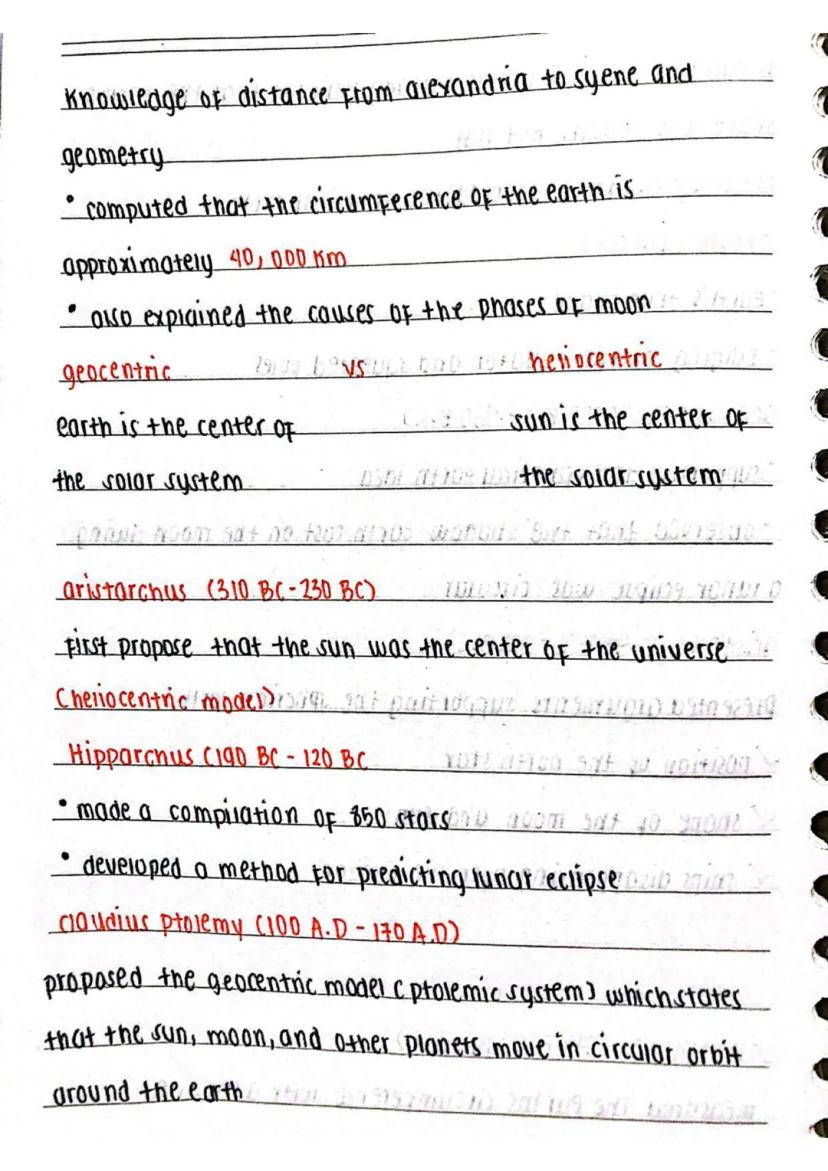 Knowledge of distance from alexandria to syene and
geometry
• computed that the circumference of the earth is
approximately 40,000 Km
• also explained the causes of the phases of moon
geocentric vs heliocentric
earth is the center of sun is the center of
the solar system the solar system
aristarchus (310 BC-230 BC)
first propose that the sun was the center of the universe
(heliocentric model)
Hipparchus (190 BC - 120 BC
• made a compilation of 850 stars
• developed a method for predicting lunar eclipse
claudius ptolemy (100 A.D - 170 A.D)
proposed the geocentric model (ptolemic system) which states
that the sun, moon, and other planets move in circular orbit
around the earth